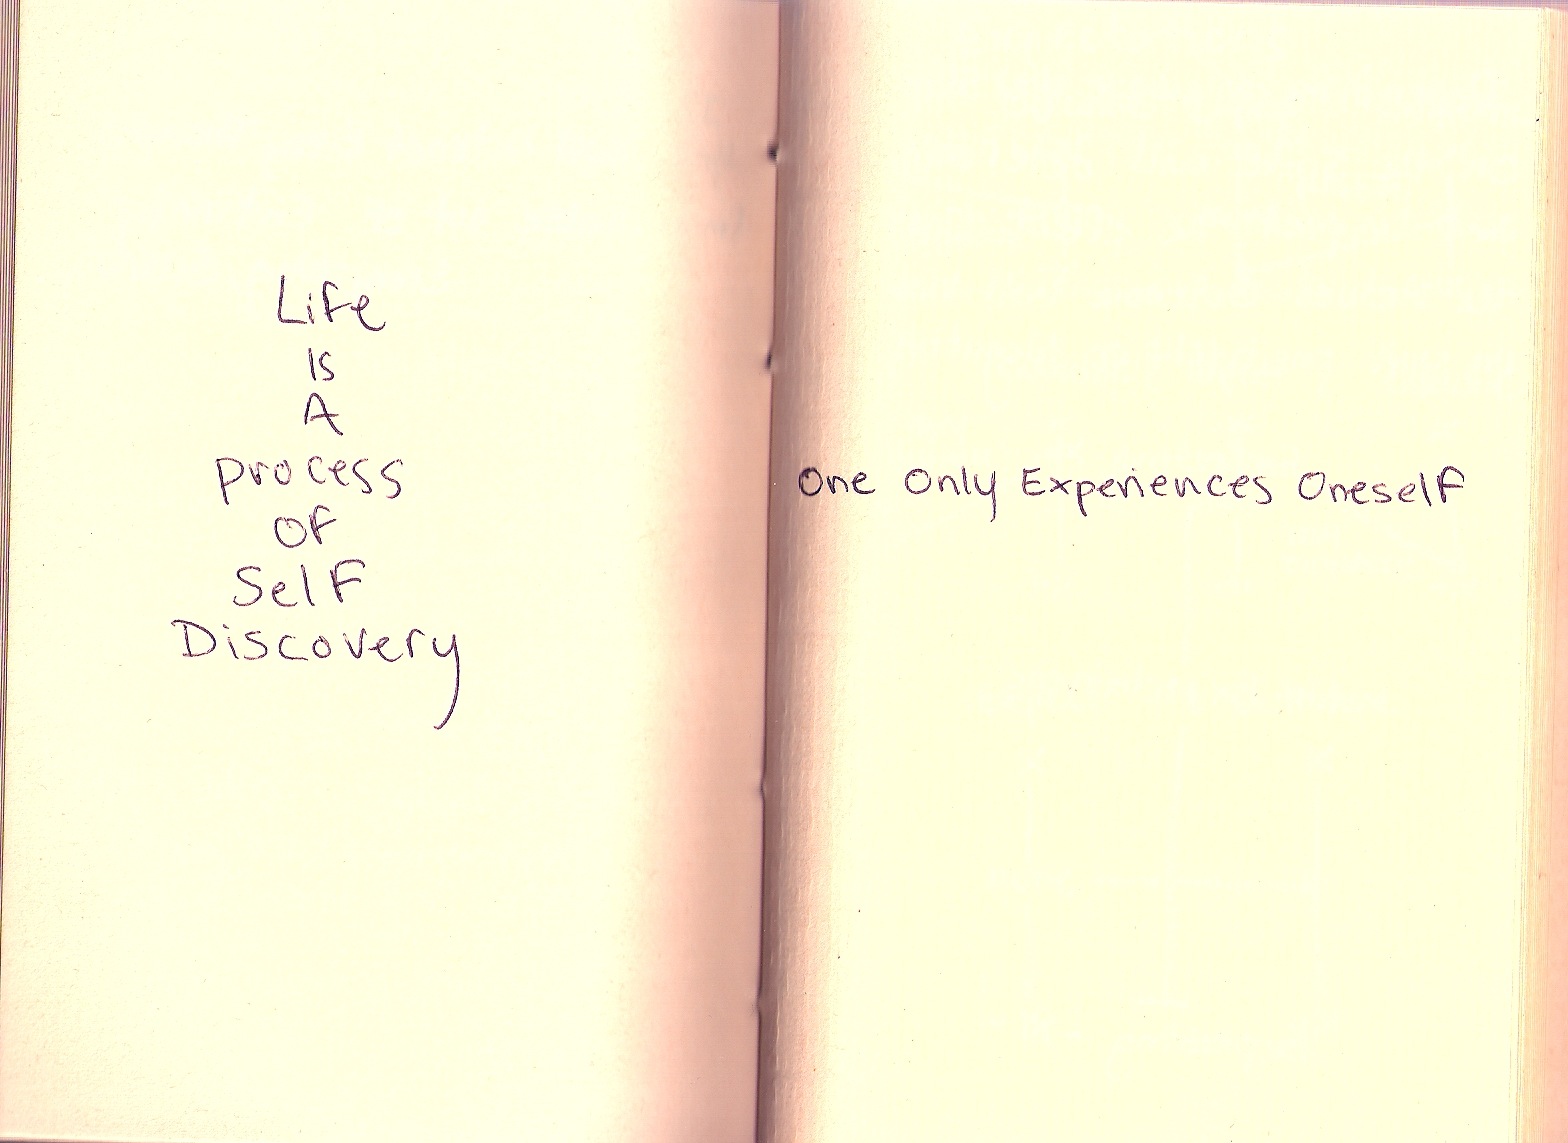 Life
Is
A
process
Of
Self
Discovery
One Only Experiences Oneself